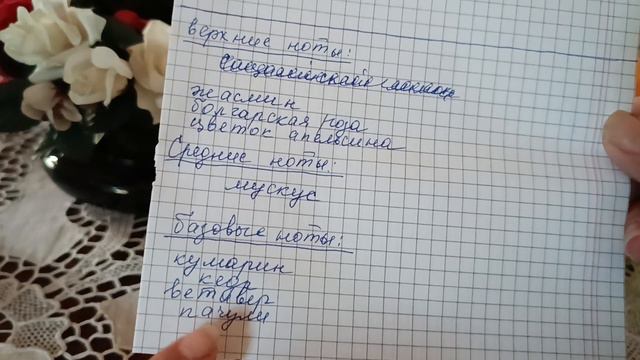 верхние ноты:
жасмин
болгарская роза
цветок апельсина
Средние ноты:
мускус
базовые ноты:
кумарин
кедр
ветивер
пачули